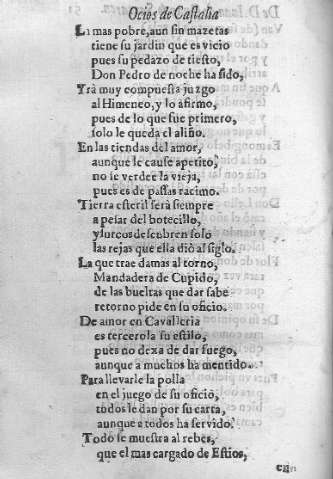 Ocios de Castalia
La mas pobre, aun sin mazetas
tiene su jardin que es vicio
pues su pedazo de tiesto,
Don Pedro de noche ha sido,
Yrà muy compuesta juzgo
al Himeneo, y lo afirmo,
pues de lo que fue primero,
solo le queda el aliño.
En las tiendas del amor,
aunque le cause apetito,
no se verdee la vieja,
pues es de passas racimo.
Tierra esteril serà siempre
a pesar del botecillo,
y surcos descubren solo
las rejas que ella diò al siglo.
La que trae damas al torno,
Mandadera de Cupido,
de las bueltas que dar sabe
retorno pide en su oficio.
De amor en Cavalleria
es tercerola su estilo,
pues no dexa de dar fuego,
aunque a muchos ha mentido.
Para llevarle la polla
en el juego de su oficio,
todos le dan por su carta,
aunque a todos ha servido.
Todo se muestra al rebes,
que el mas cargado de Estios,